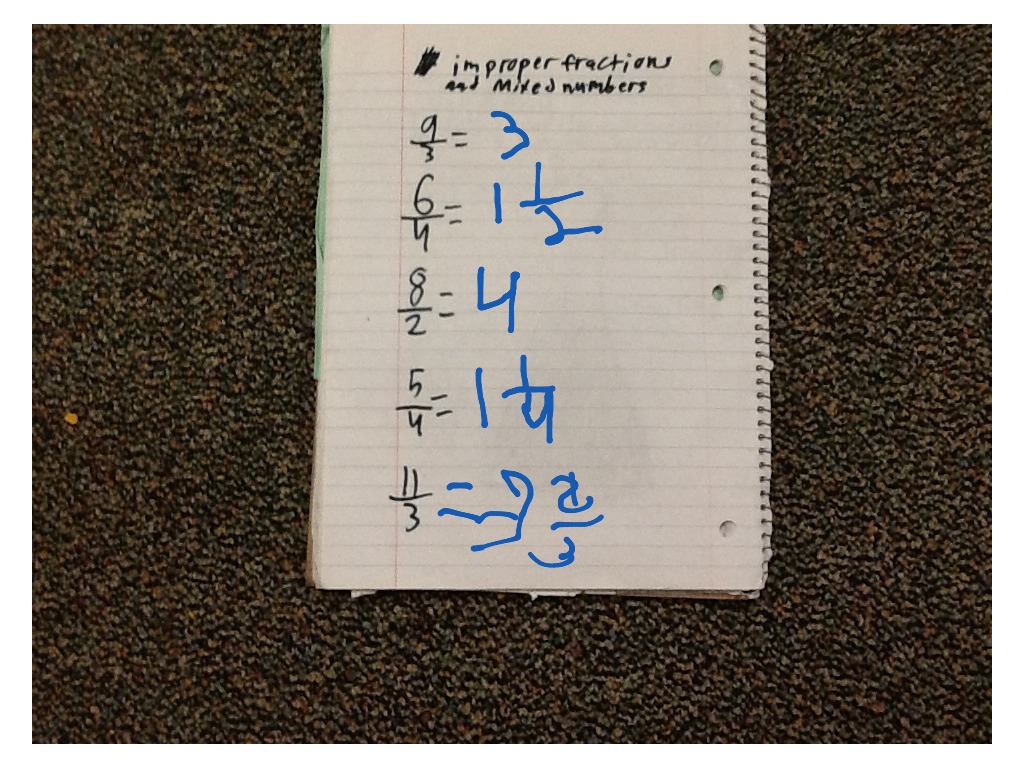 improper fractions
and Mixed numbers
9/3 = 3
6/4 = 1 1/2
8/2 = 4
5/4 = 1 1/4
11/3 = 3 2/3